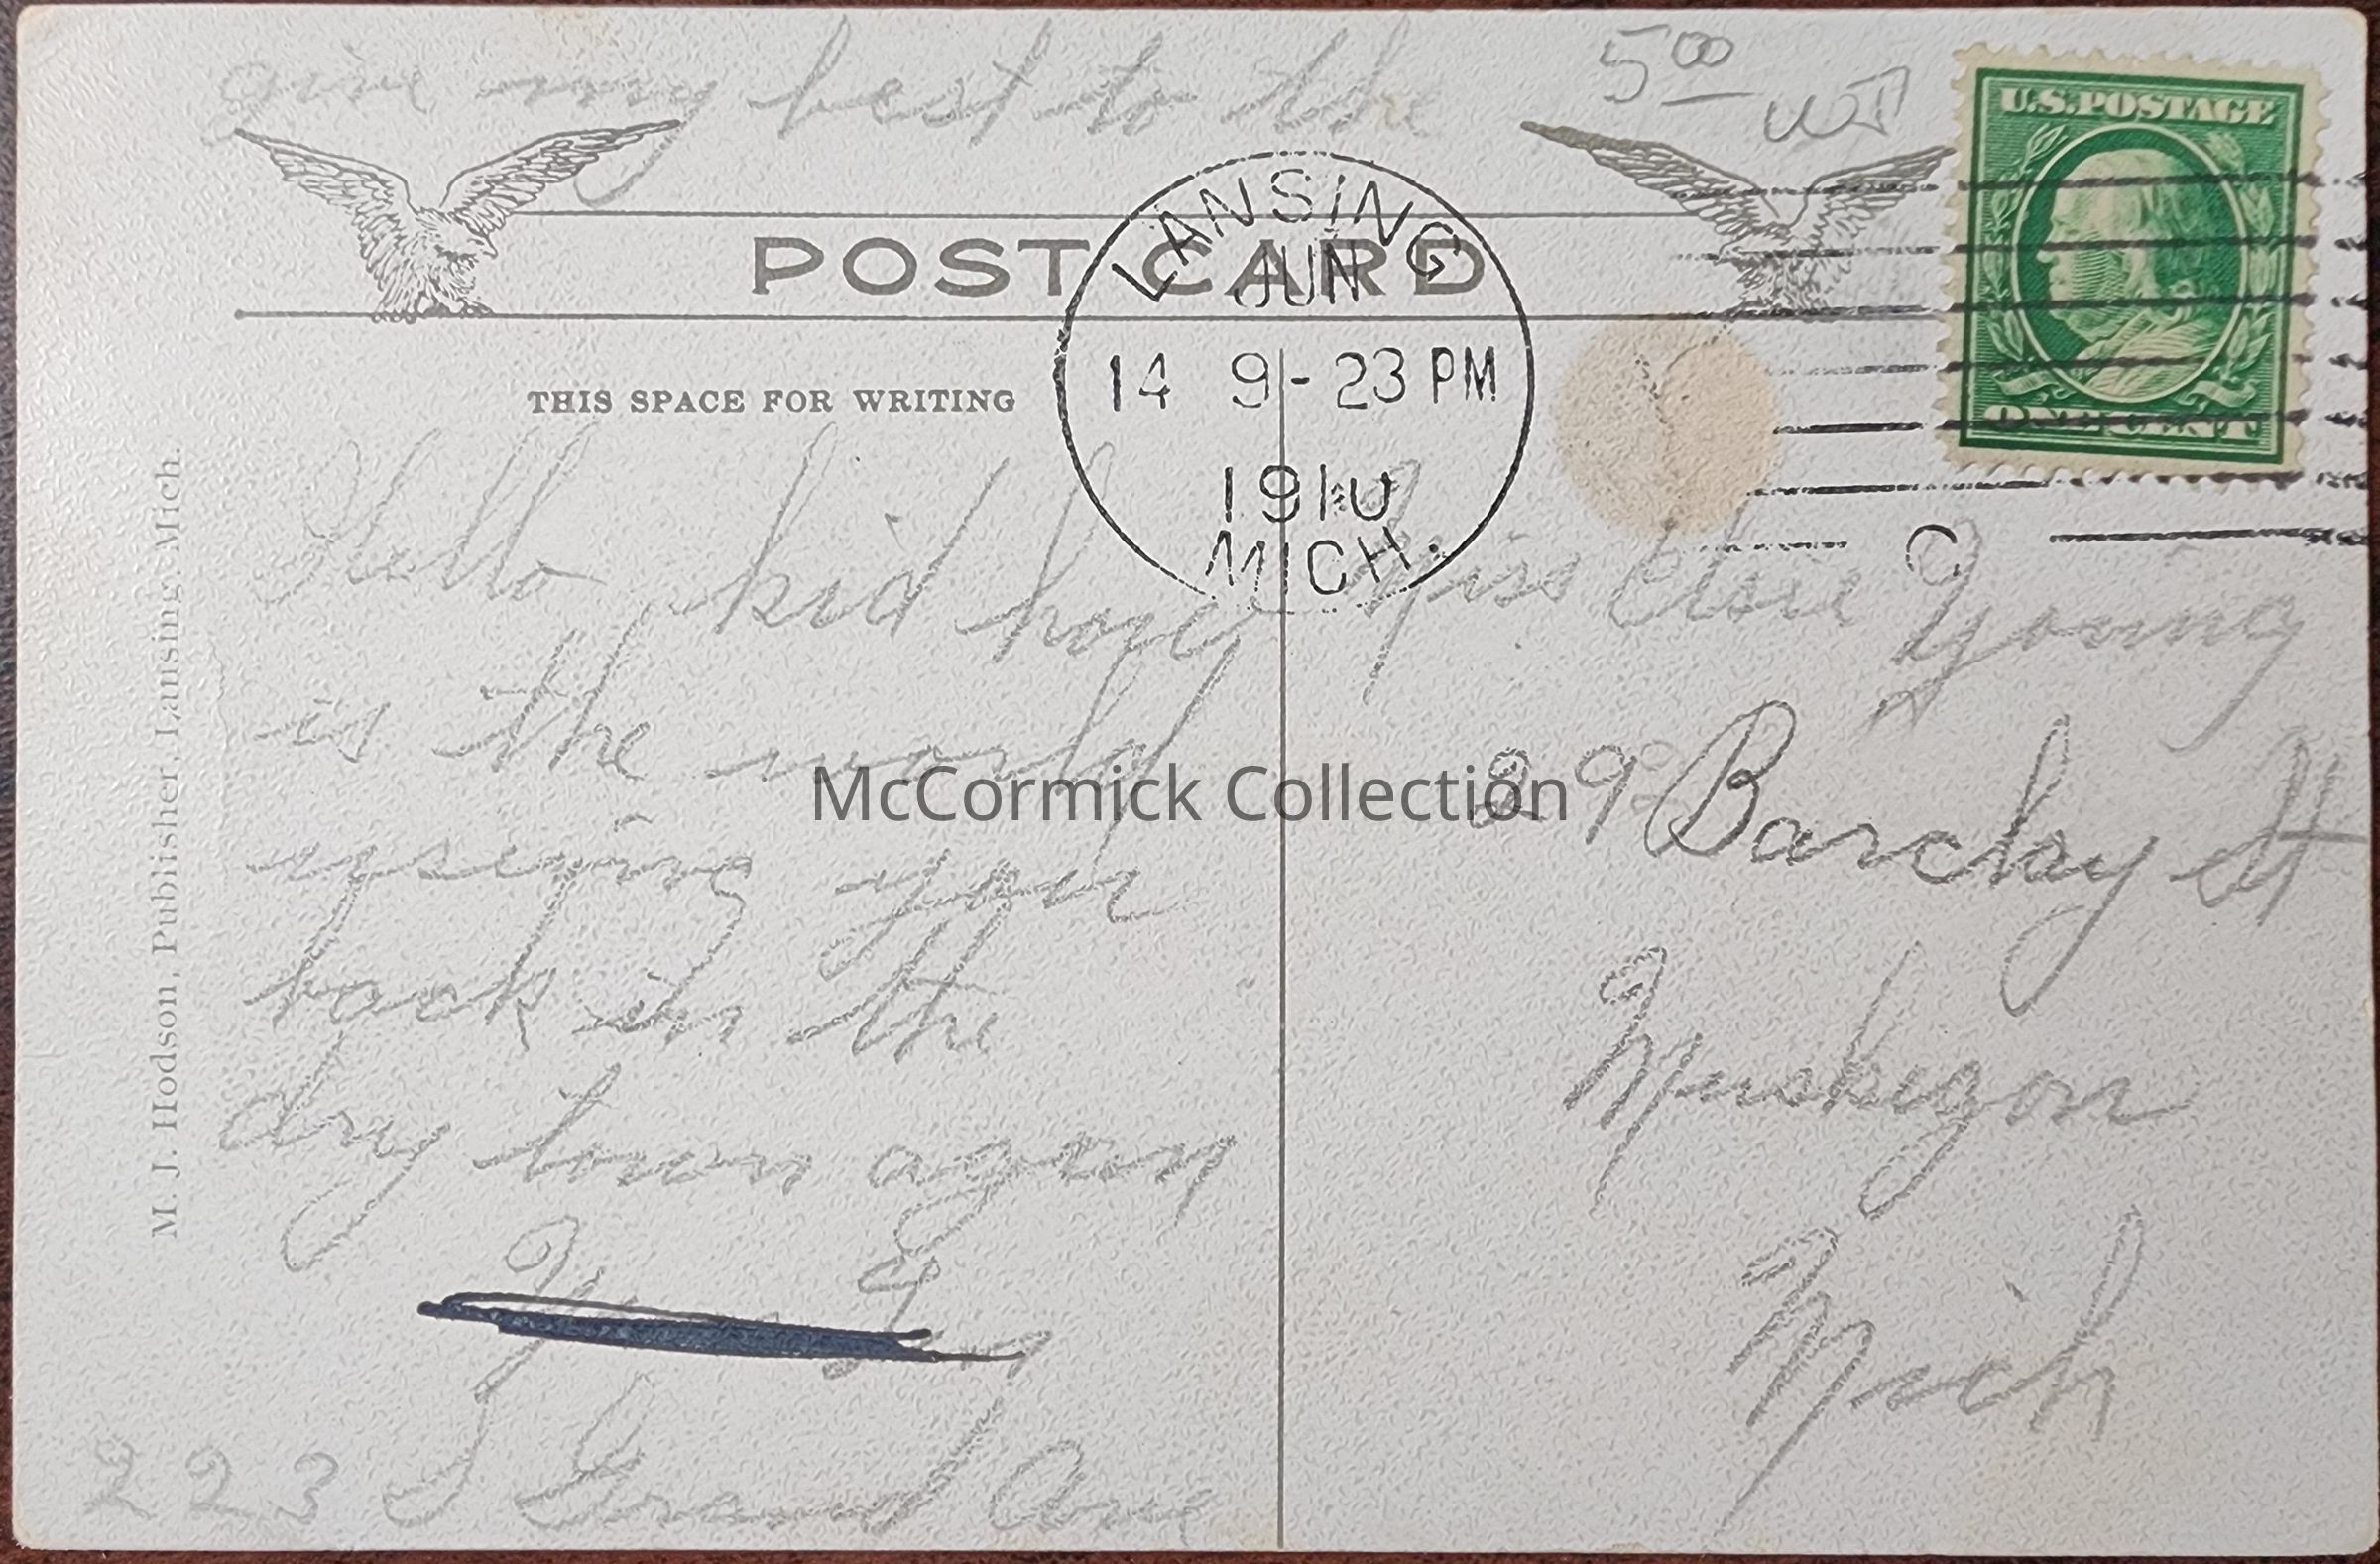 give my best to the
5 00
U.S. POSTAGE
LANSING
JUN
14 9-23 PM
1910
MICH.
POST CARD
ONE CENT
THIS SPACE FOR WRITING
M. J. Hodson, Publisher, Lansing, Mich.
Hello kid how
is the world
useing you
back in the
dry town again
223 S Grand Ave
Miss Young
29 Barclay St
Muskegon
Mich
McCormick Collection